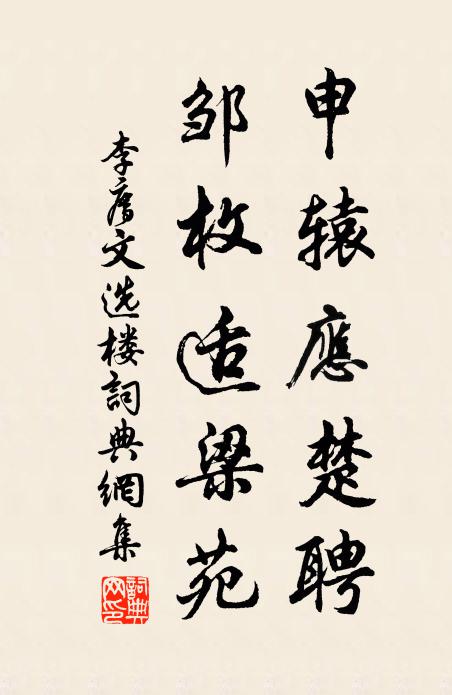 申辕應楚聘
邹枚适梁苑
李唐文选楼詞典網集
詞典网印